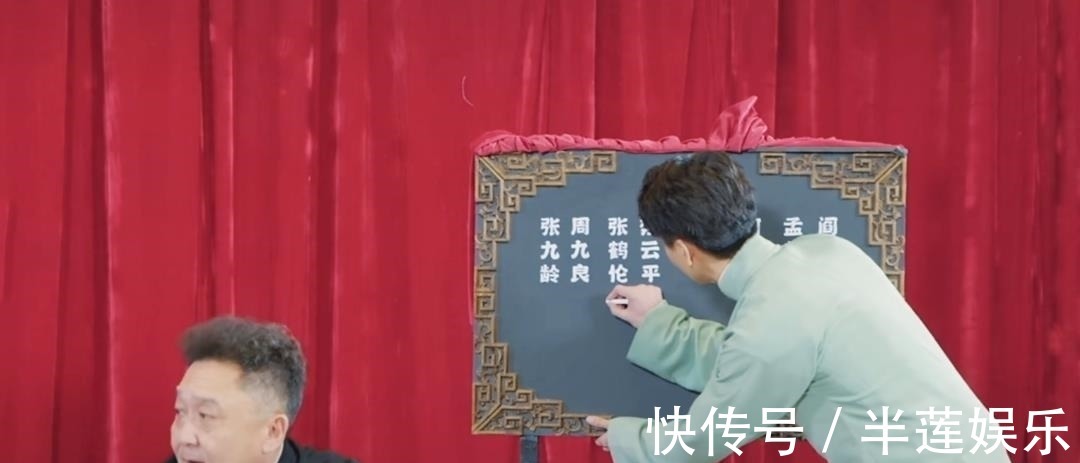 阎
孟
云平
张鹤伦
周九良
张九龄
快传号 / 半莲娱乐